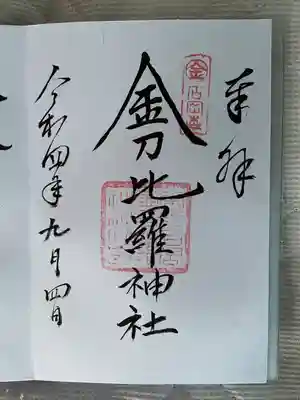 奉拝
金刀比羅神社
令和四年九月四日